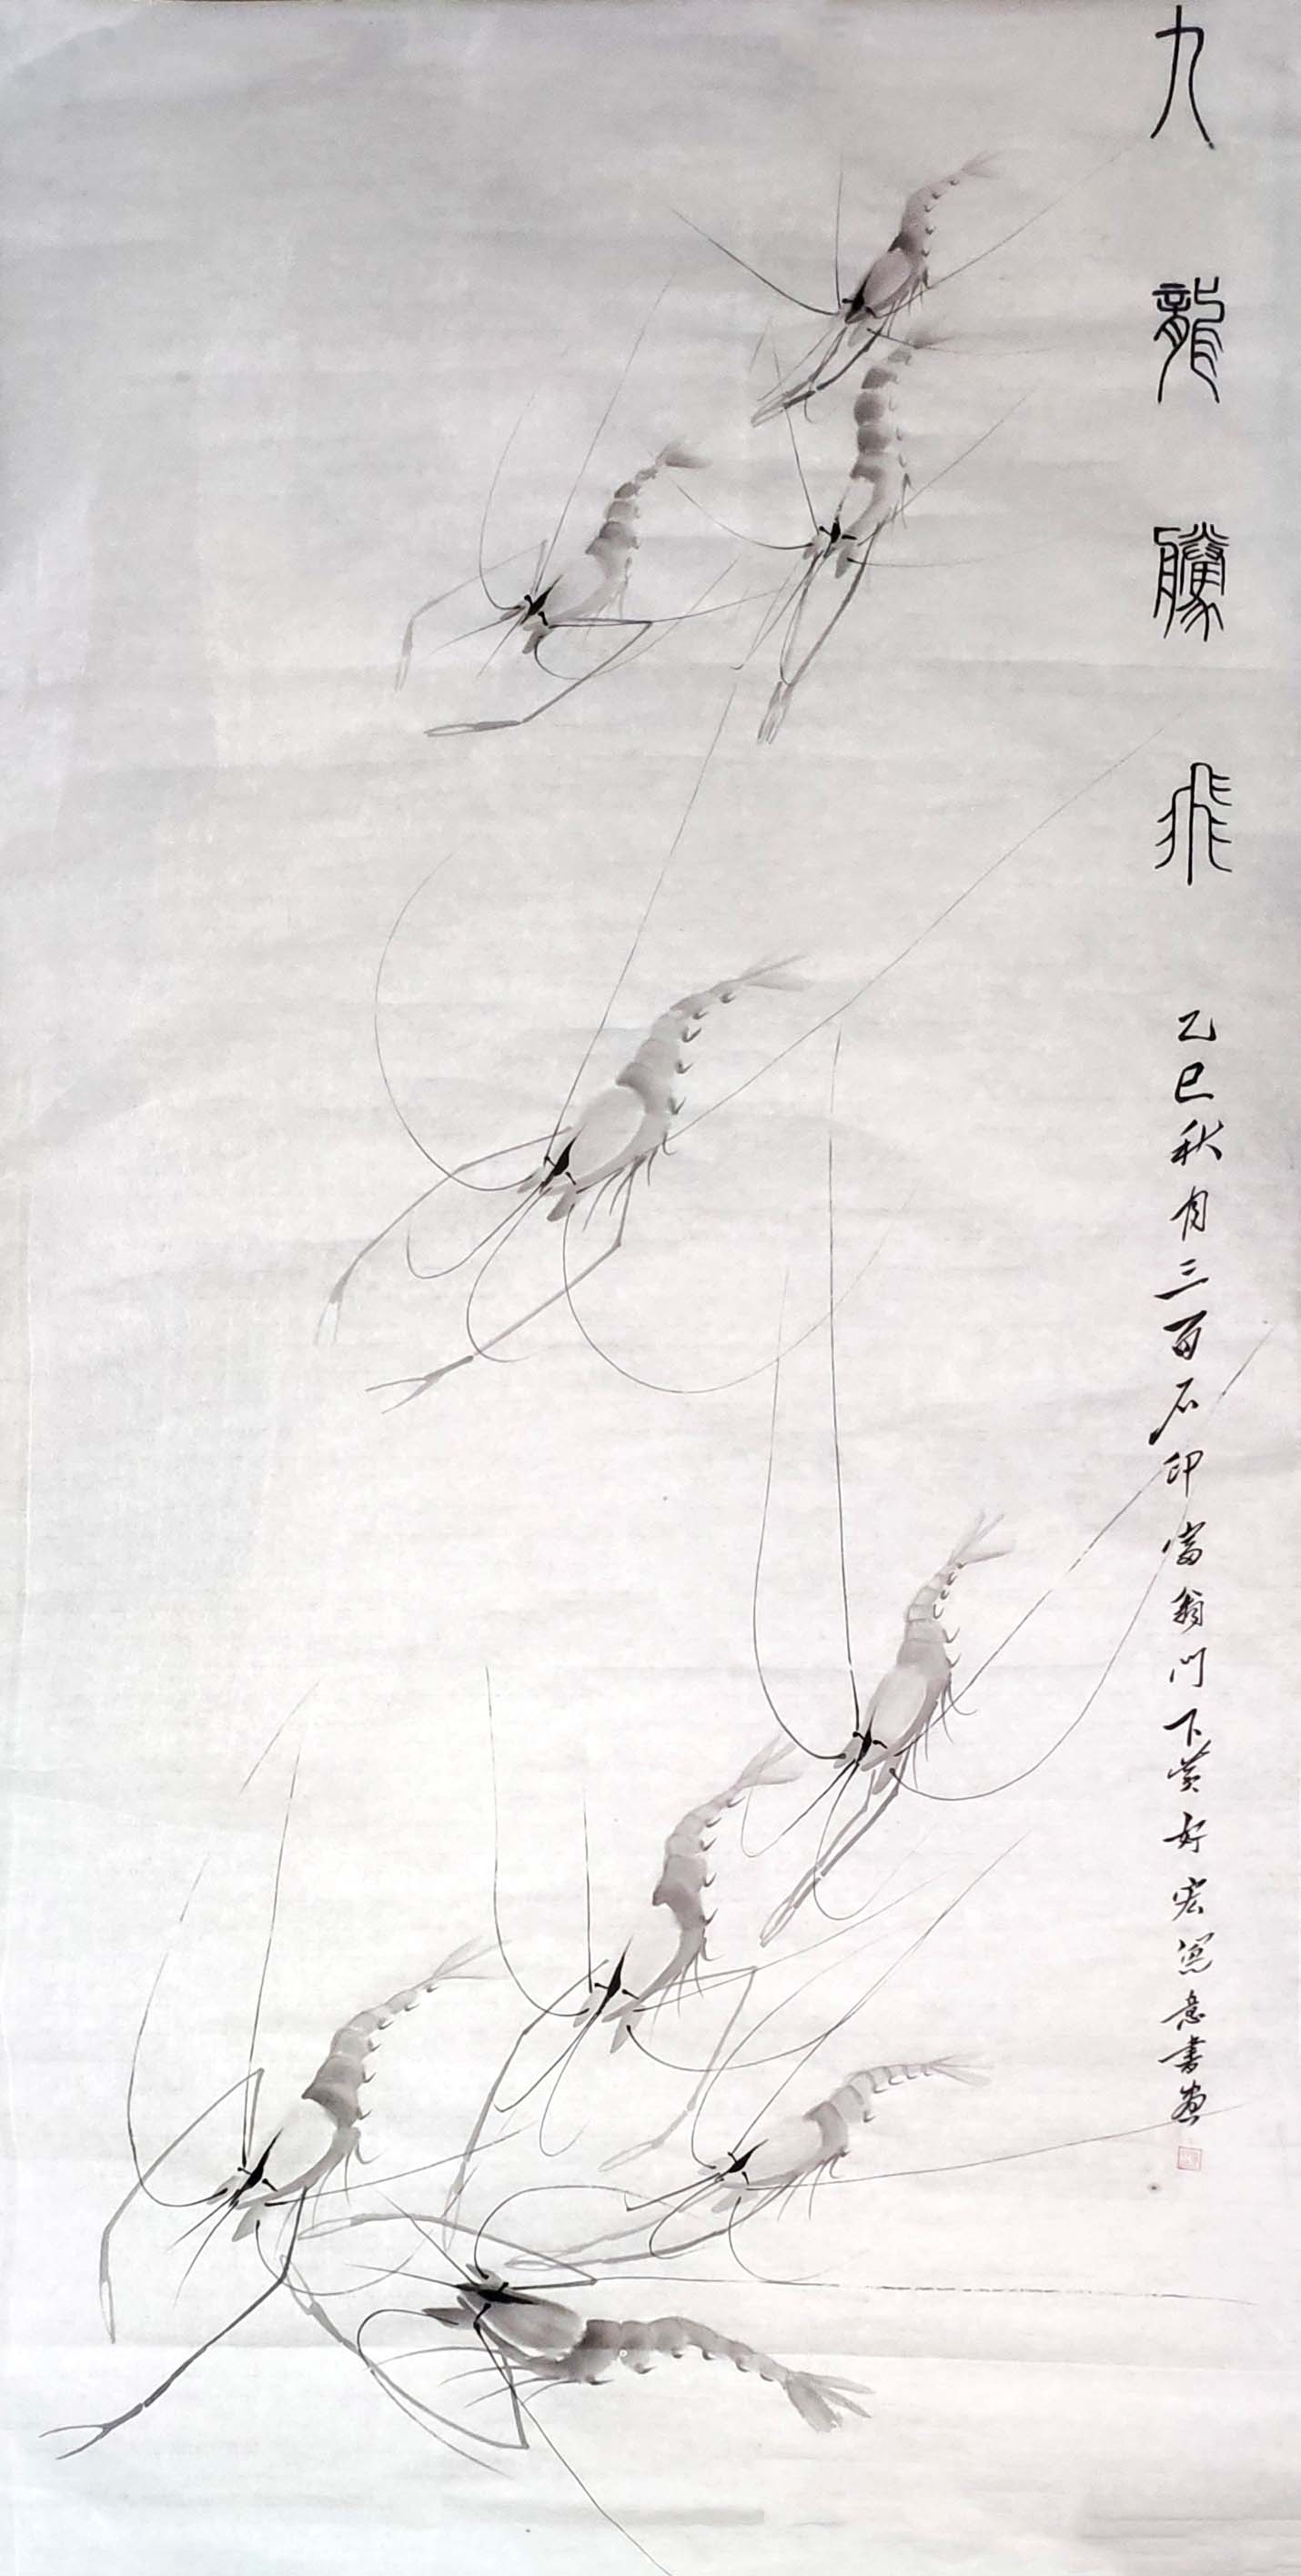 九龍騰飛
乙巳秋月三百石印富翁門下黄好宏寫意書畫